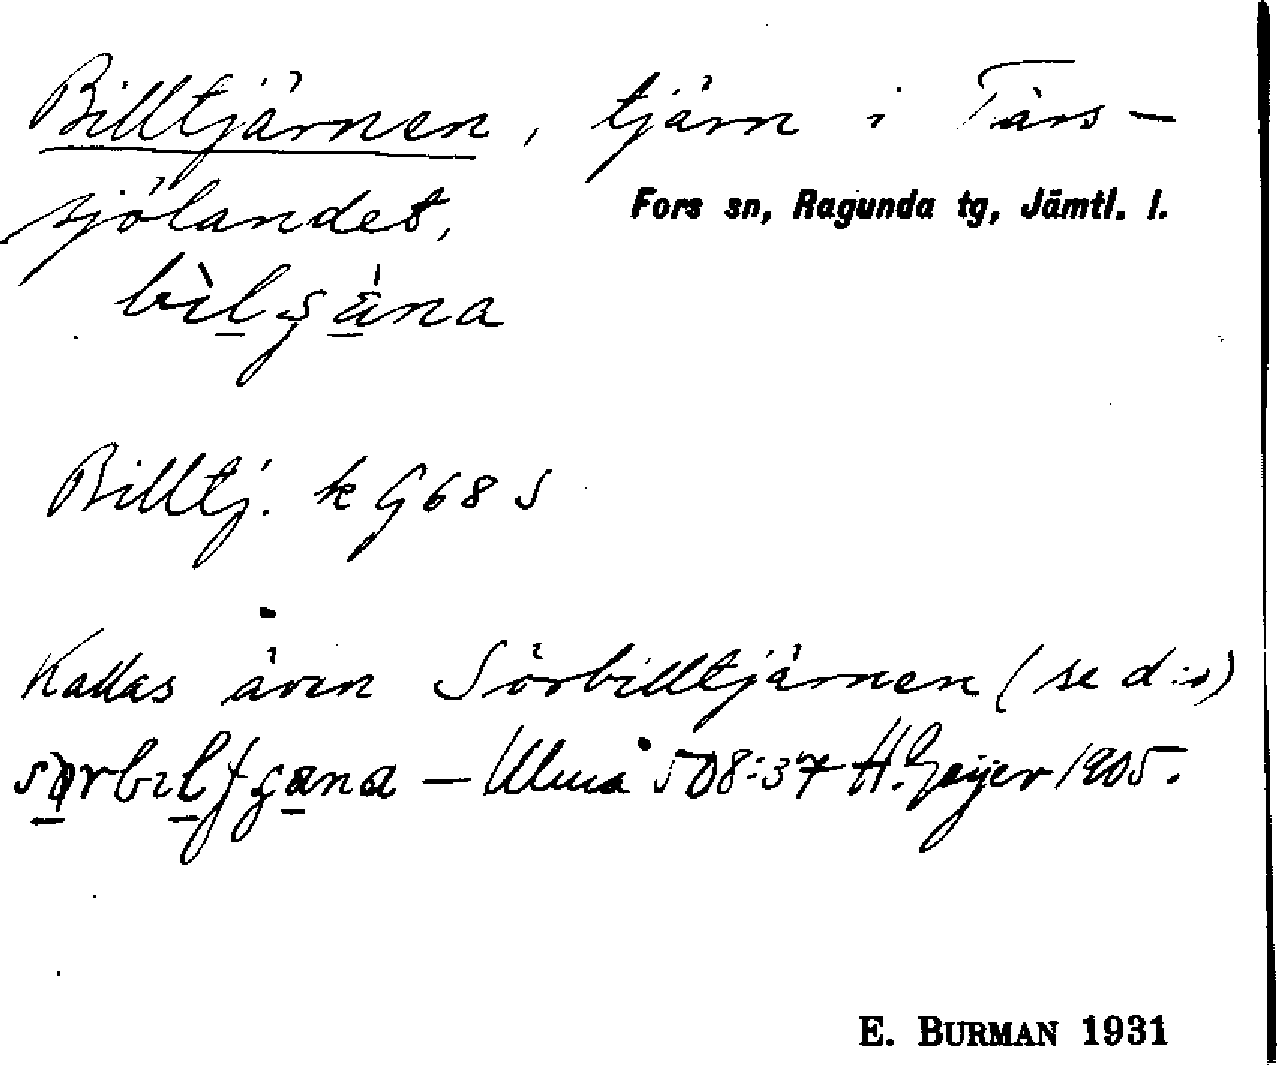 Billtjärnen, tjärn i Tärs-
sjölandet,
Fors sn, Ragunda tg, Jämtl. l.
bìlʒäna
Billtj. k G68 S
Kallas även Sörbilltjärnen (se d:o)
– Ulmå 508:37 H. Geijer 1905.
E. BURMAN 1931